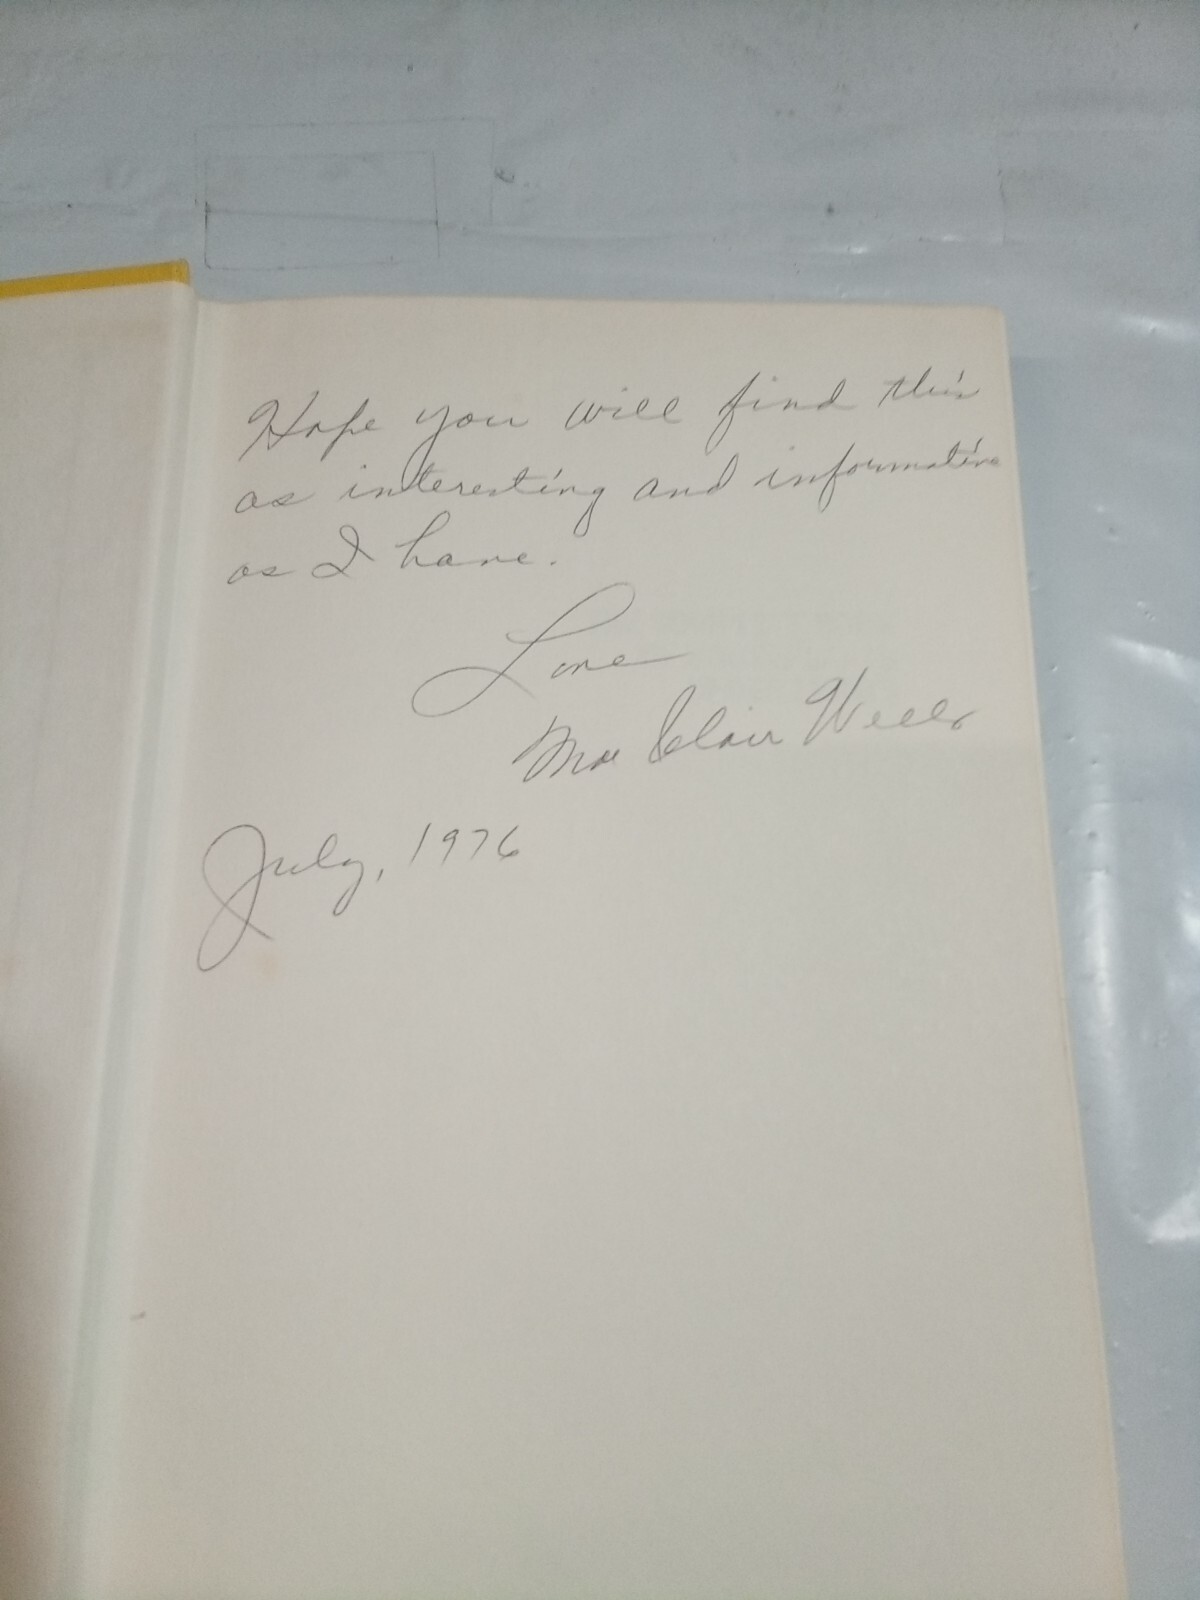 Hope you will find this
as interesting and informative
as I have.
Love
Mae Clair Wells
July, 1976